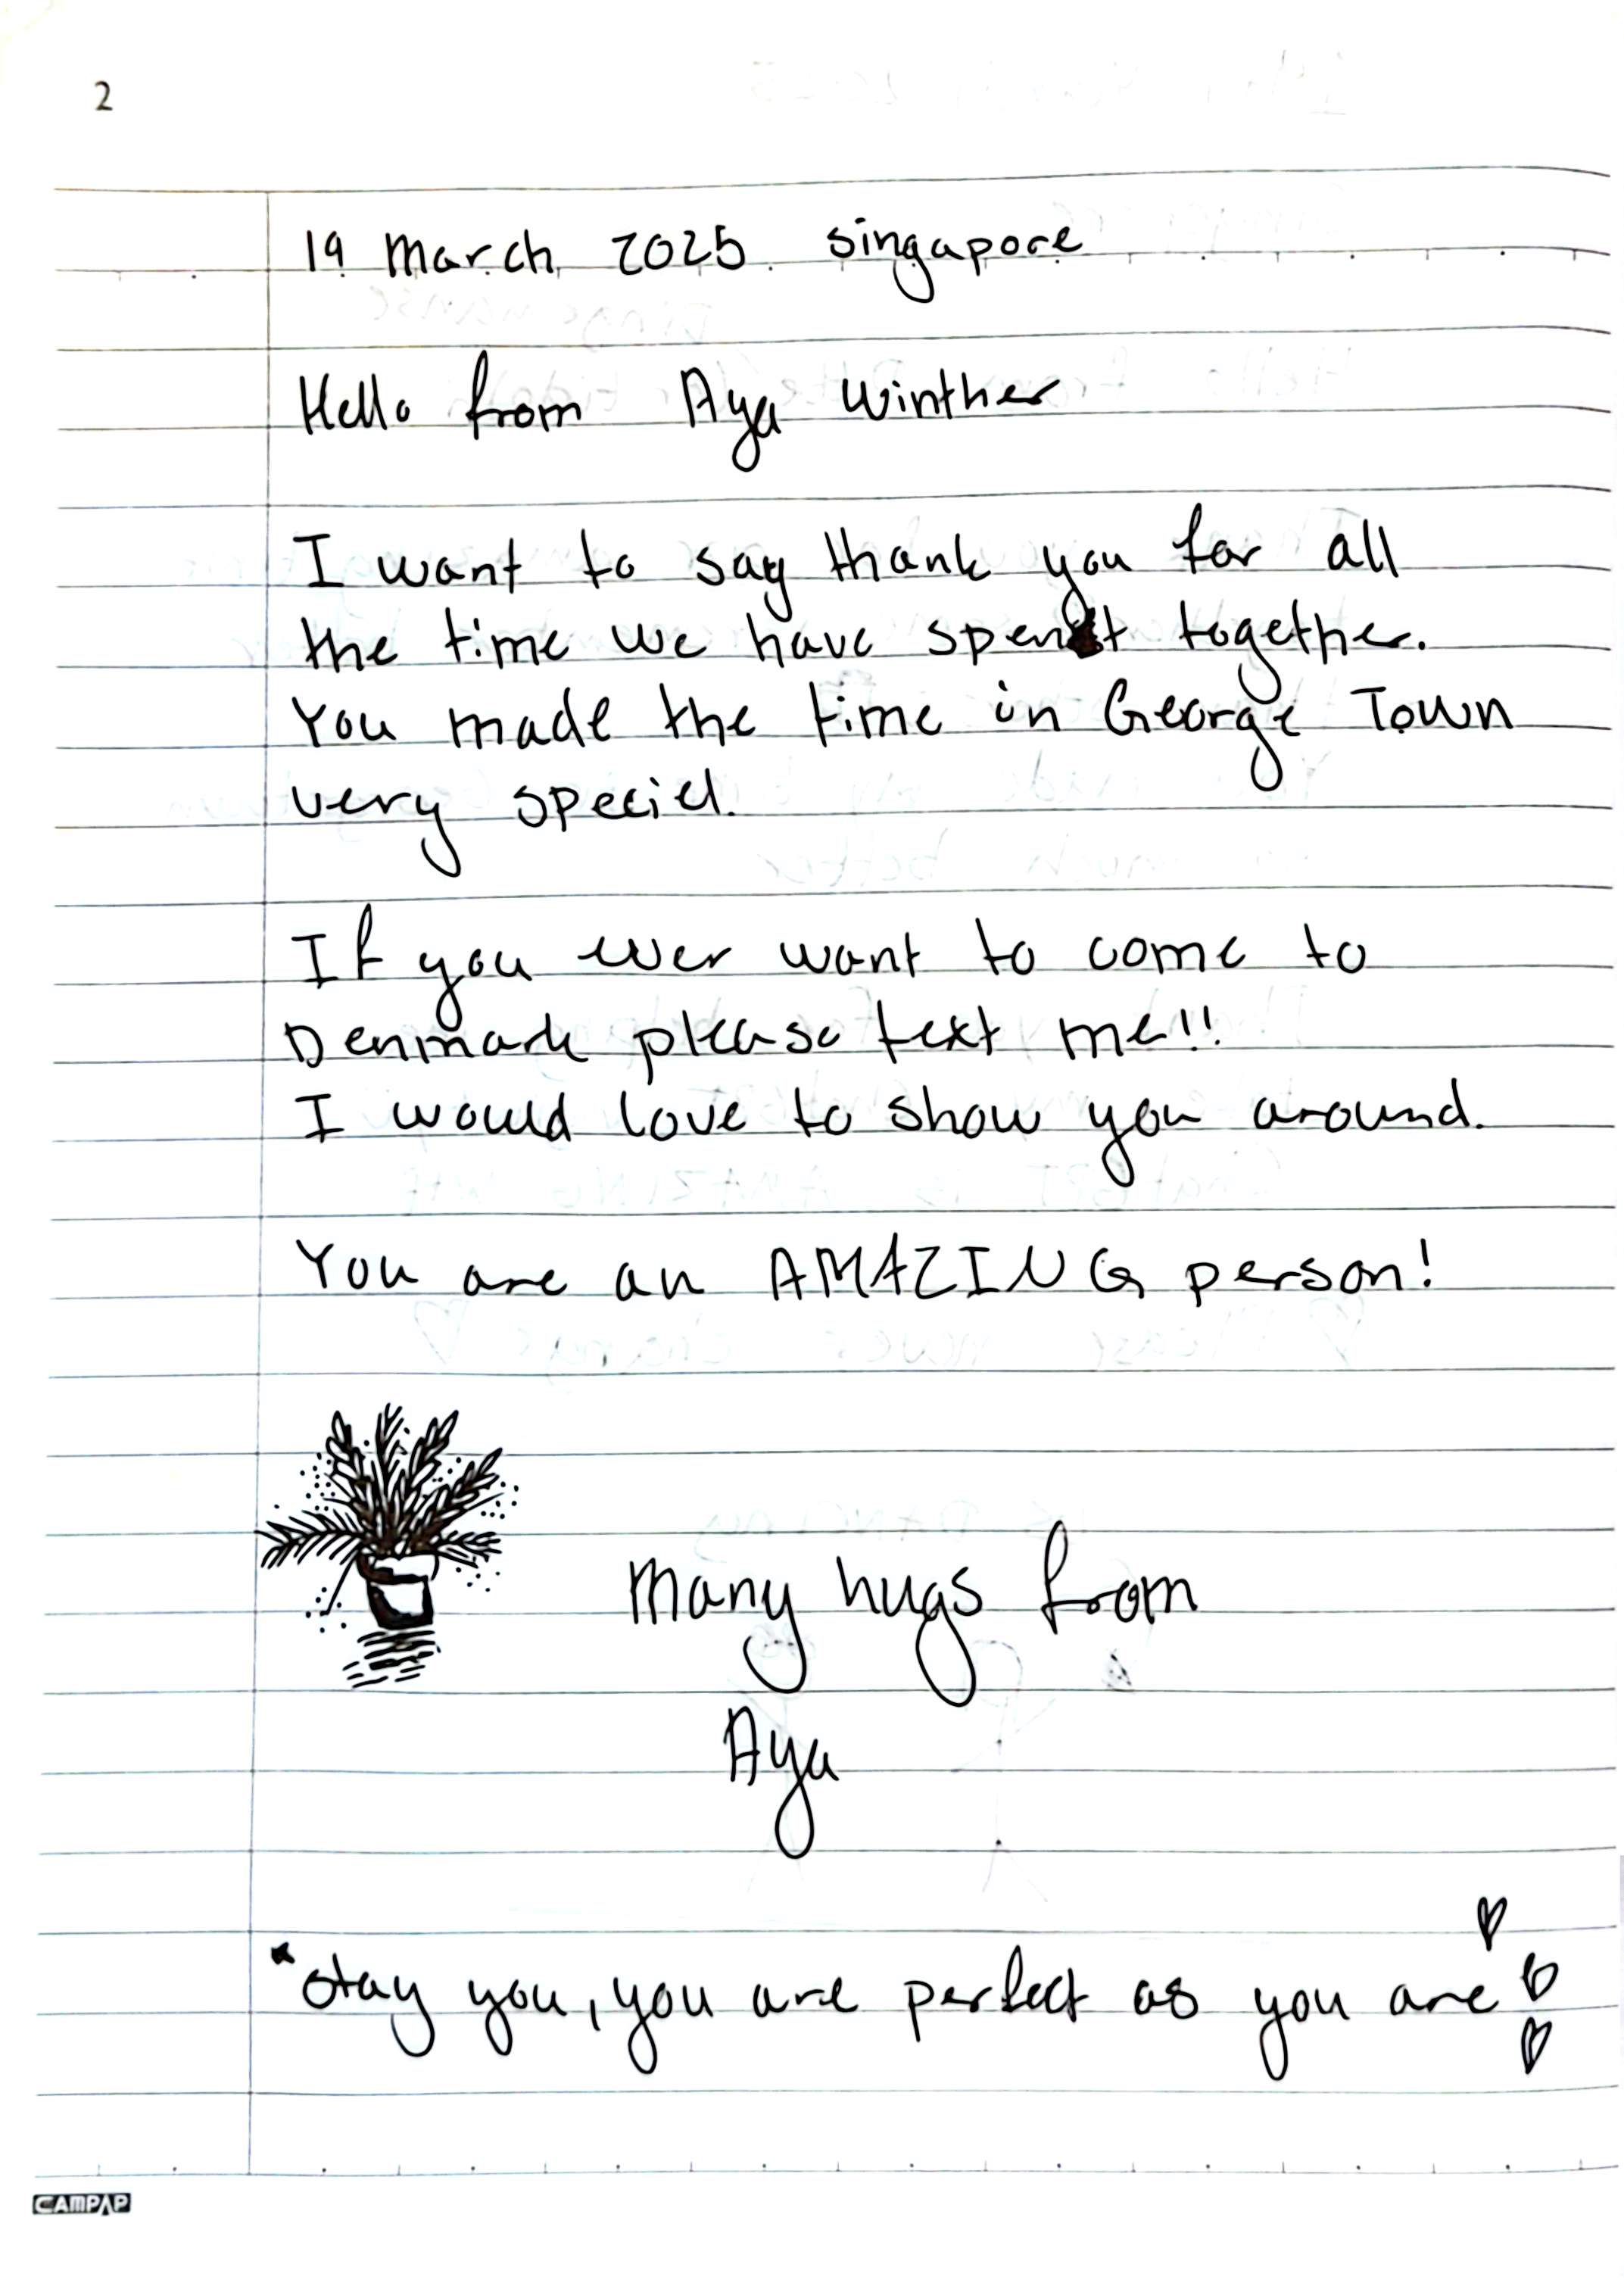 2
19 March 2025 singapore
Hello from Aya Winther
I want to say thank you for all
the time we have spent together.
You made the time in George Town
very speciel.
If you ever want to come to
Denmark please text me!!
I would love to show you around.
You are an AMAZING person!
Many hugs from
Aya
*stay you, you are perfect as you are
CAMPAP